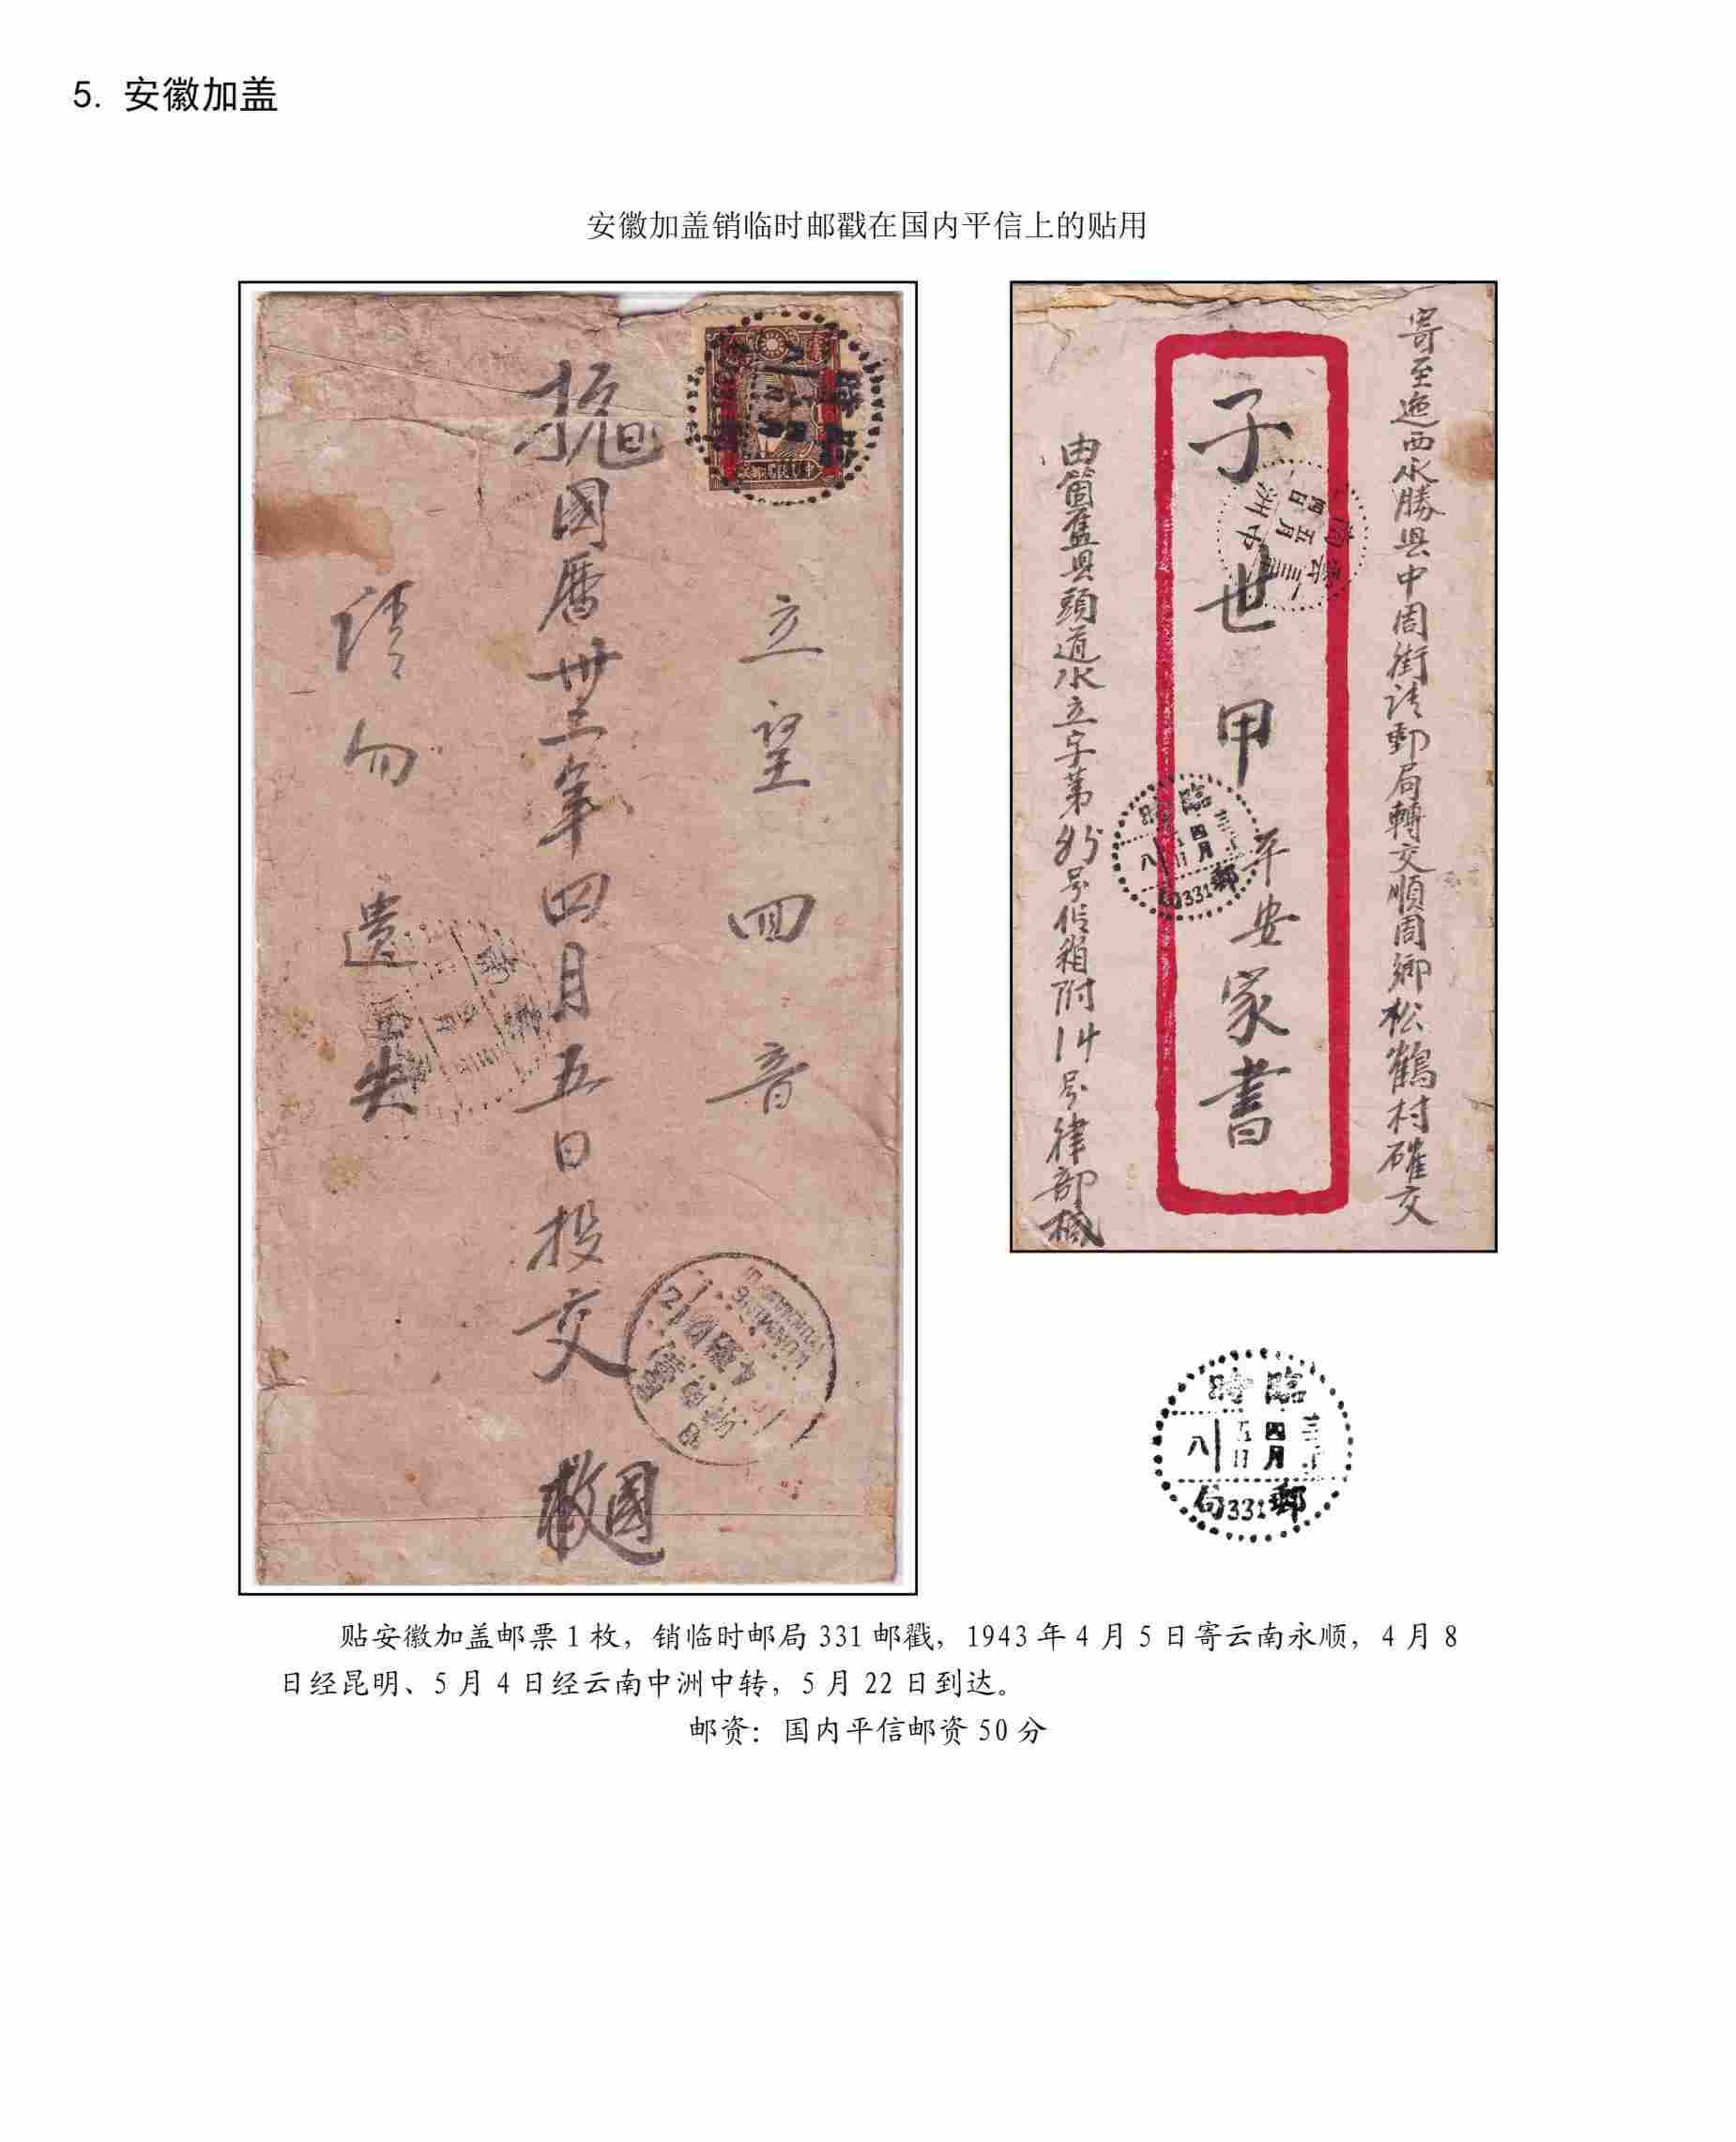 5. 安徽加盖
安徽加盖销临时邮戳在国内平信上的贴用
立望回音
抗日
國曆卅三年四月五日投交
救國
请勿遗失
寄至迤西永勝县中周街请郵局轉交順周鄉松鶴村確交
子世甲
平安家書
由箇舊县頭道水立字第85号信箱附14号律部械
臨時
四月
五日
八
郵331局
臨時
四月
五日
八
郵331局
贴安徽加盖邮票1枚，销临时邮局331邮戳，1943年4月5日寄云南永顺，4月8
日经昆明、5月4日经云南中洲中转，5月22日到达。
邮资：国内平信邮资50分